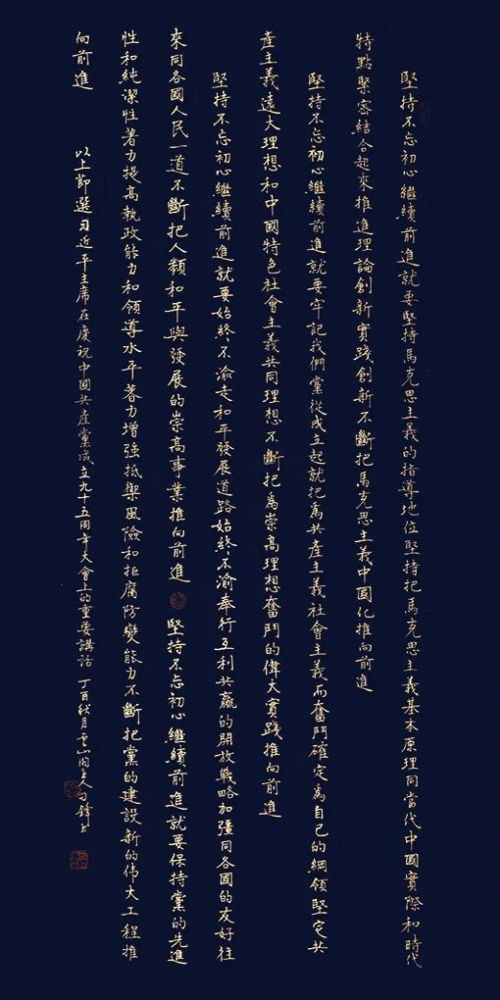 堅持不忘初心繼續前進就要堅持馬克思主義的指導地位堅持把馬克思主義基本原理同當代中國實際和時代
特點緊密結合起來推進理論創新實踐創新不斷把馬克思主義中國化推向前進
堅持不忘初心繼續前進就要牢記我們黨從成立起就把為共產主義社會主義而奮鬥確定為自己的綱領堅定共
產主義遠大理想和中國特色社會主義共同理想不斷把為崇高理想奮鬥的偉大實踐推向前進
堅持不忘初心繼續前進就要始終不渝走和平發展道路始終不渝奉行互利共贏的開放戰略加強同各國的友好往
來同各國人民一道不斷把人類和平與發展的崇高事業推向前進 堅持不忘初心繼續前進就要保持黨的先進
性和純潔性著力提高執政能力和領導水平著力增強抵禦風險和拒腐防變能力不斷把黨的建設新的伟大工程推
向前進
以上節選习近平主席在慶祝中國共產黨成立九十五周年大會上的重要講話 丁酉 月 山 书